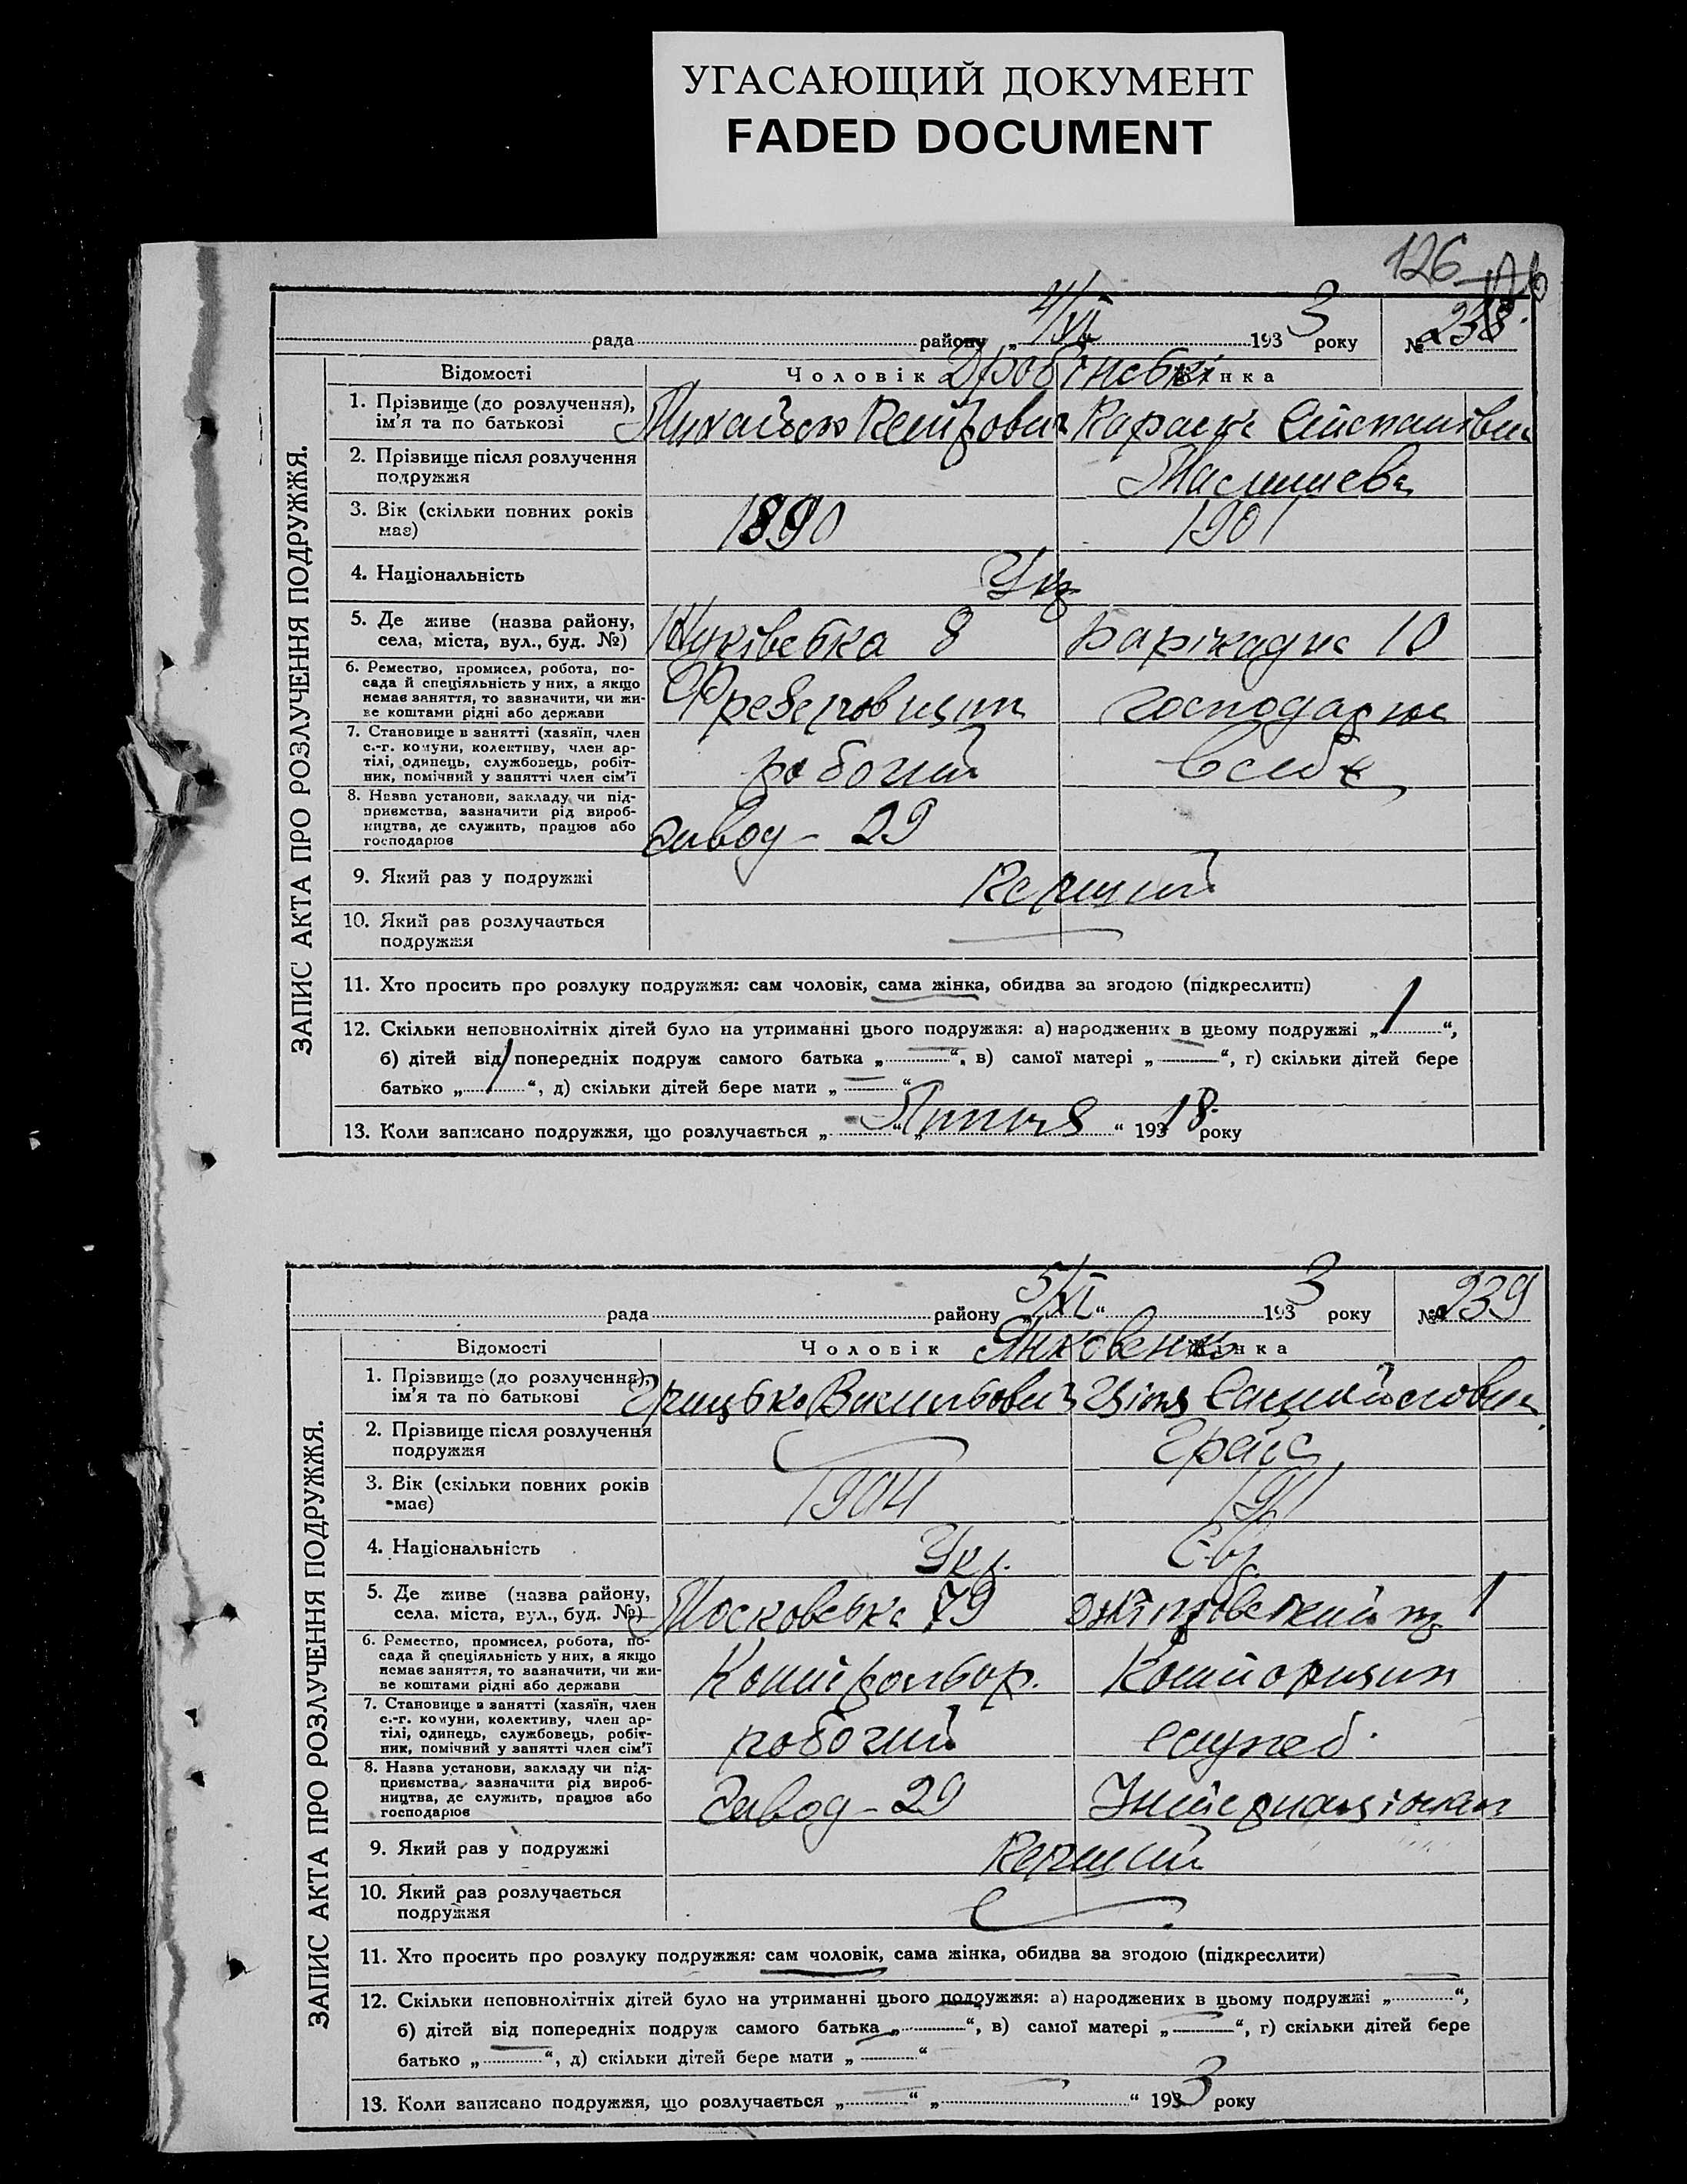 УГАСАЮЩИЙ ДОКУМЕНТ
FADED DOCUMENT
126
ЗАПИС АКТА ПРО РОЗЛУЧЕННЯ ПОДРУЖЖЯ.
рада району „4/XI“ 1933 року № 238
Відомості Чоловік Жінка
1. Прізвище (до розлучення),
ім'я та по батькові
2. Прізвище після розлучення
подружжя
3. Вік (скільки повних років
має)
1890 1901
4. Національність
Укр
5. Де живе (назва району,
села, міста, вул., буд. №)
8 Барікадна 10
6. Ремество, промисел, робота, по-
сада й спеціяльність у них, а якщо
немає заняття, то зазначити, чи жи-
ве коштами рідні або держави
Фрезеровщик господарка
7. Становище в занятті (хазяїн, член
с.-г. комуни, колективу, член ар-
тілі, одинець, службовець, робіт-
ник, помічний у занятті член сім'ї
робочий в себе
8. Назва установи, закладу чи під-
приємства, зазначити рід вироб-
ництва, де служить, працює або
господарює
завод - 29
9. Який раз у подружжі
Перший
10. Який раз розлучається
подружжя
11. Хто просить про розлуку подружжя: сам чоловік, сама жінка, обидва за згодою (підкреслити)
12. Скільки неповнолітніх дітей було на утриманні цього подружжя: а) народжених в цьому подружжі „1“,
б) дітей від попередніх подруж самого батька „—“, в) самої матері „—“, г) скільки дітей бере
батько „1“, д) скільки дітей бере мати „—“
13. Коли записано подружжя, що розлучається „ “ „ “ 19318 року
ЗАПИС АКТА ПРО РОЗЛУЧЕННЯ ПОДРУЖЖЯ.
рада району „5/XI“ 1933 року № 239
Відомості Чоловік Янковенко Жінка
1. Прізвище (до розлучення),
ім'я та по батькові
Грицько Васильович Цիля
2. Прізвище після розлучення
подружжя
Грайс
3. Вік (скільки повних років
має)
1904 1911
4. Національність
Укр. Євр
5. Де живе (назва району,
села, міста, вул., буд. №)
Московська 79
6. Ремество, промисел, робота, по-
сада й спеціяльність у них, а якщо
немає заняття, то зазначити, чи жи-
ве коштами рідні або держави
Контрольор. Конторщик
7. Становище в занятті (хазяїн, член
с.-г. комуни, колективу, член ар-
тілі, одинець, службовець, робіт-
ник, помічний у занятті член сім'ї
робочий служб.
8. Назва установи, закладу чи під-
приємства, зазначити рід вироб-
ництва, де служить, працює або
господарює
Завод - 29 Інтернаціонал
9. Який раз у подружжі
Перший
10. Який раз розлучається
подружжя
11. Хто просить про розлуку подружжя: сам чоловік, сама жінка, обидва за згодою (підкреслити)
12. Скільки неповнолітніх дітей було на утриманні цього подружжя: а) народжених в цьому подружжі „—“,
б) дітей від попередніх подруж самого батька „—“, в) самої матері „—“, г) скільки дітей бере
батько „—“, д) скільки дітей бере мати „—“
13. Коли записано подружжя, що розлучається „—“ „—“ 1933 року